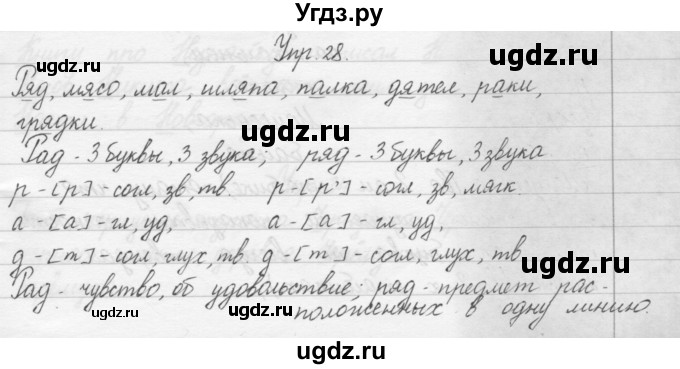 Угдз.ру
Упр 28.
Ряд, мясо, мал, шляпа, палка, дятел, раки,
грядки.
Рад - 3 буквы, 3 звука, ряд - 3 буквы, 3 звука
р - [р] - согл, зв, тв. р - [р'] - согл, зв, мягк.
а - [а] - гл, уд, а - [а] - гл, уд,
д - [т] - согл, глух, тв д - [т] - согл, глух, тв
Рад - чувство, об удовольствие; ряд - предмет рас-
положенных в одну линию.
ugdz.ru
ugdz.ru
ugdz.ru
ugdz.ru
ugdz.ru
ugdz.ru
ugdz.ru
ugdz.ru
ugdz.ru